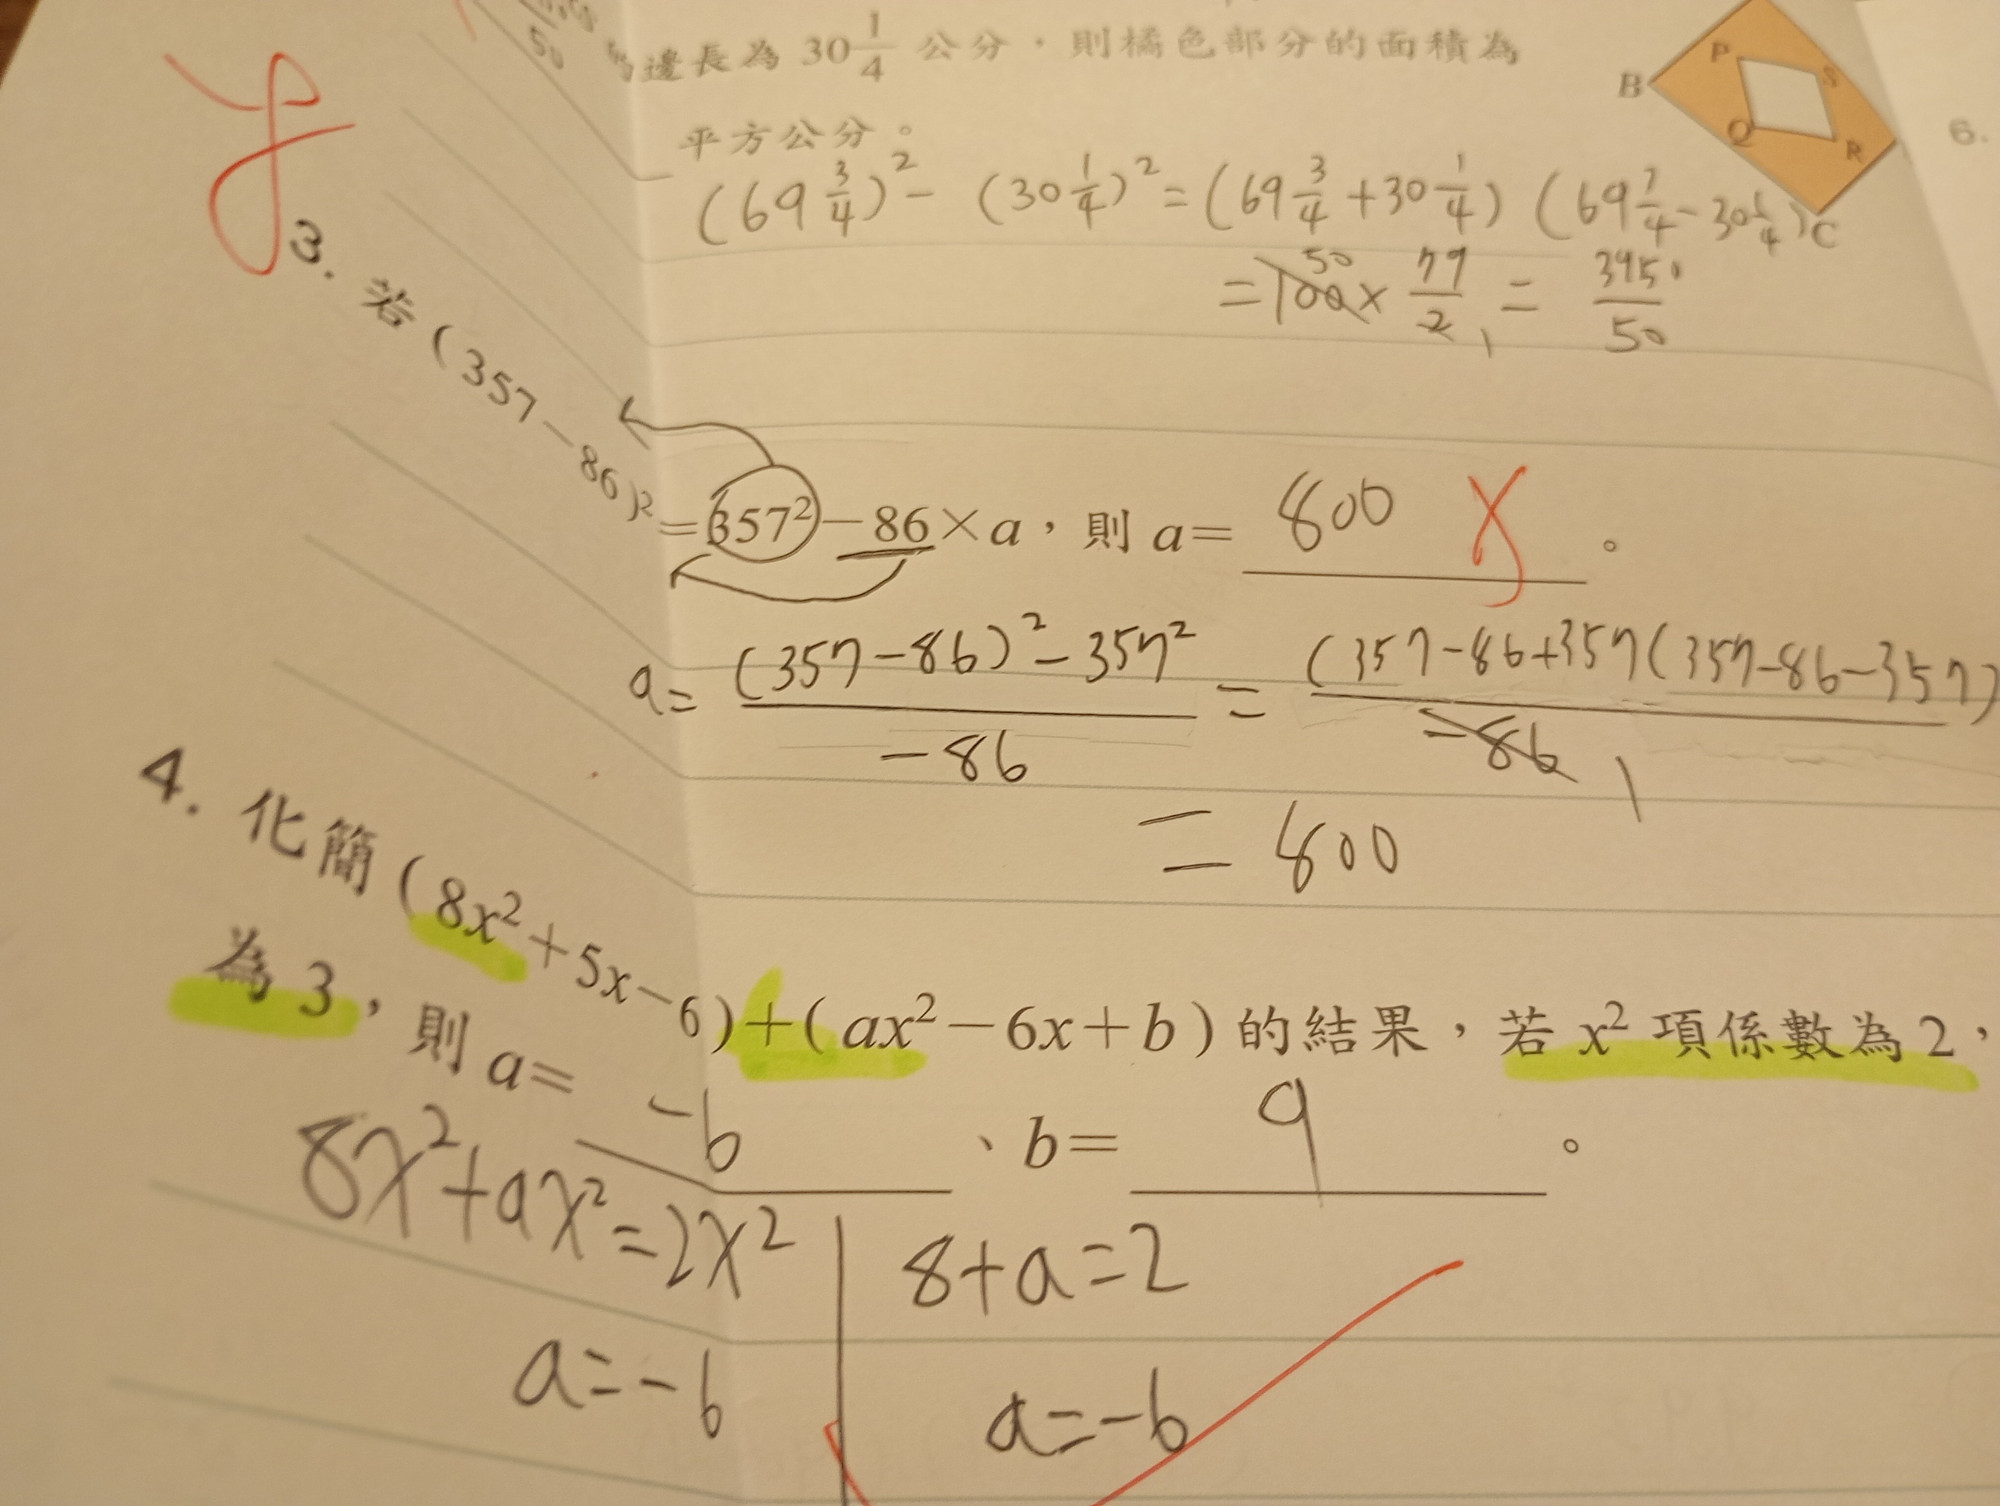 邊長為 30 1/4 公分，則橘色部分的面積為
平方公分。
B P S Q R C
(69 3/4)² - (30 1/4)² = (69 3/4 + 30 1/4) (69 3/4 - 30 1/4)
= 100 × 79/2 = 3950/50
50
1
6.
3. 若 (357-86)² = 357² - 86 × a，則 a = 800 。
a = (357-86)² - 357² / -86 = (357-86+357(357-86-357) / -86
1
= 800
4. 化簡 (8x²+5x-6)+(ax²-6x+b) 的結果，若 x² 項係數為 2，
為 3，則 a = -6 、b = 9 。
8x²+ax²=2x² 8+a=2
a=-6 a=-6